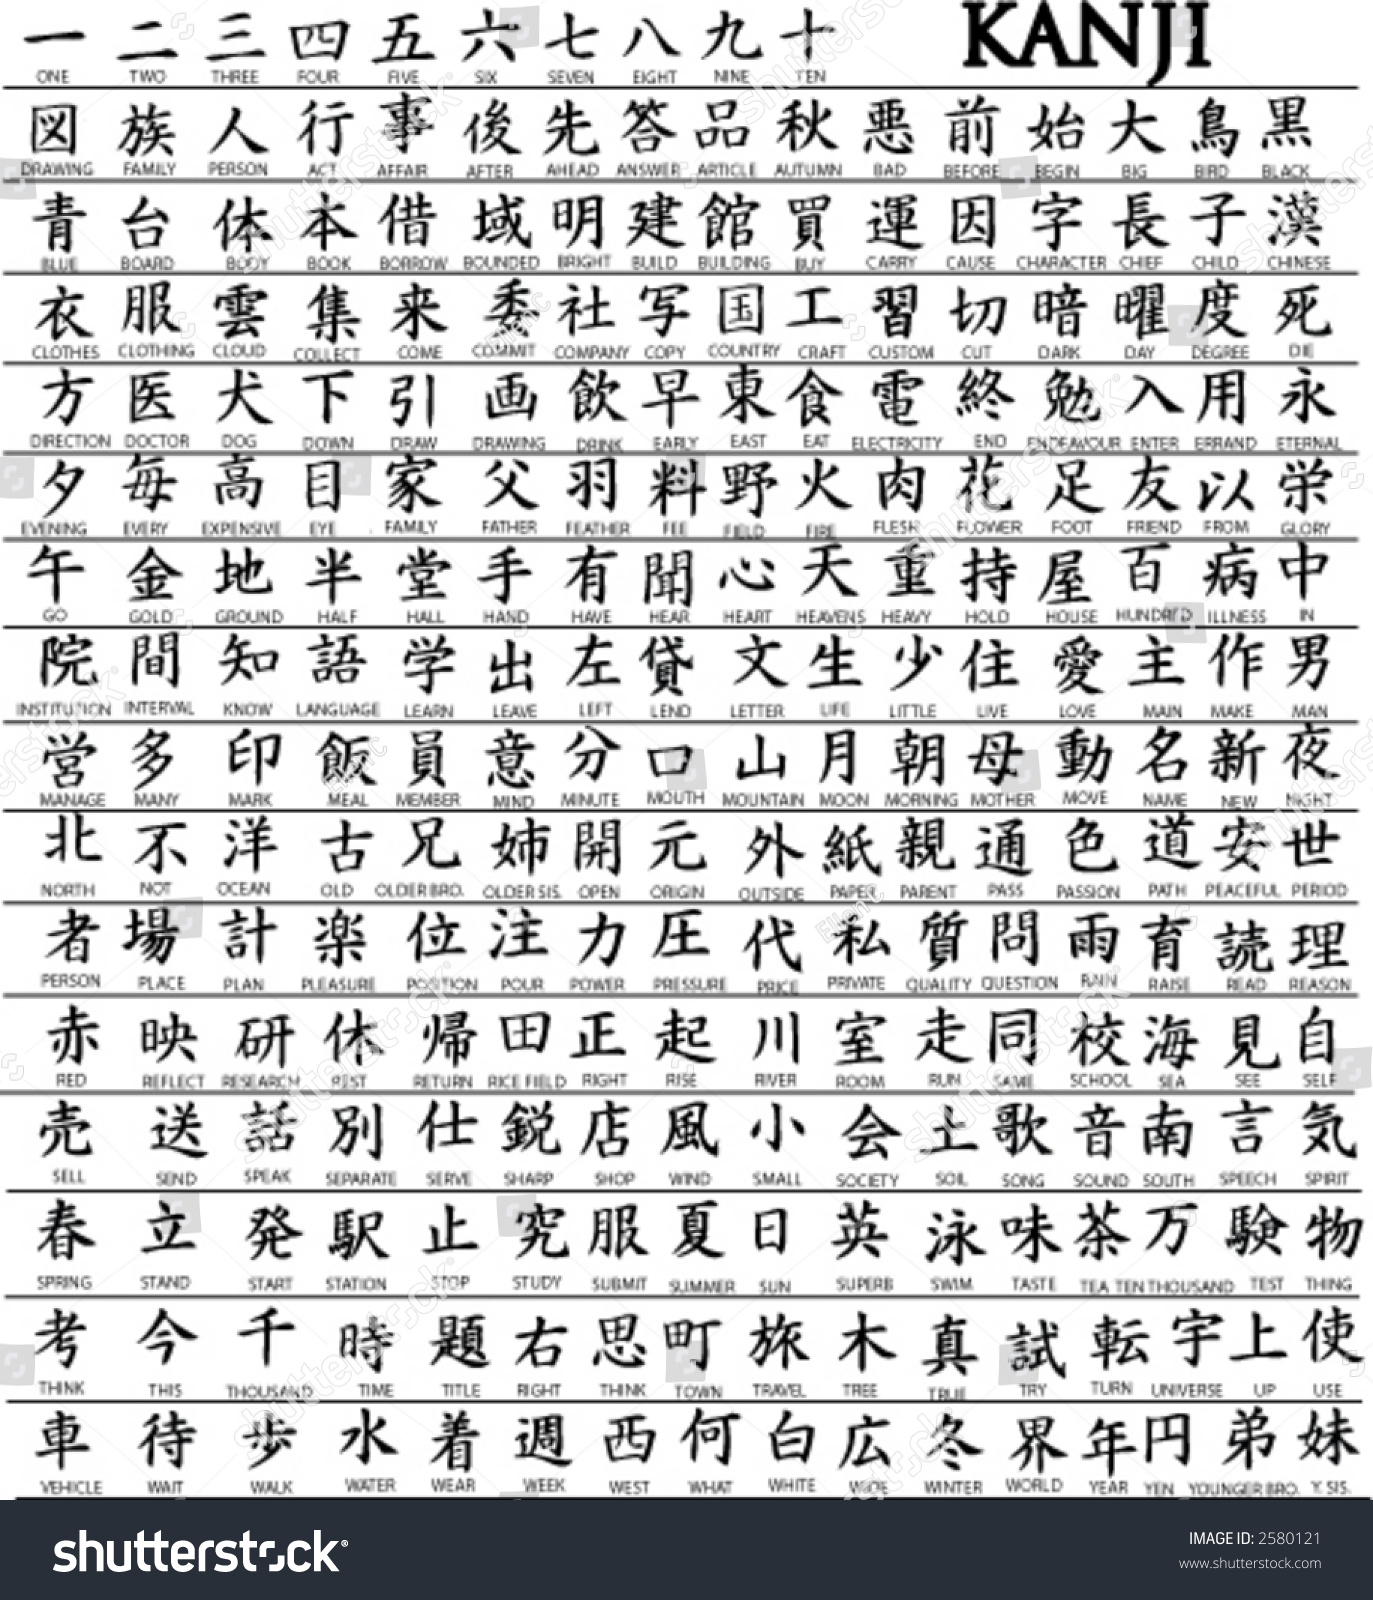 KANJI
一 二 三 四 五 六 七 八 九 十
ONE TWO THREE FOUR FIVE SIX SEVEN EIGHT NINE TEN
図 族 人 行 事 後 先 答 品 秋 悪 前 始 大 鳥 黒
DRAWING FAMILY PERSON ACT AFFAIR AFTER AHEAD ANSWER ARTICLE AUTUMN BAD BEFORE BEGIN BIG BIRD BLACK
青 台 体 本 借 域 明 建 館 買 運 因 字 長 子 漢
BLUE BOARD BODY BOOK BORROW BOUNDED BRIGHT BUILD BUILDING BUY CARRY CAUSE CHARACTER CHIEF CHILD CHINESE
衣 服 雲 集 来 委 社 写 国 工 習 切 暗 曜 度 死
CLOTHES CLOTHING CLOUD COLLECT COME COMMIT COMPANY COPY COUNTRY CRAFT CUSTOM CUT DARK DAY DEGREE DIE
方 医 犬 下 引 画 飲 早 東 食 電 終 勉 入 用 永
DIRECTION DOCTOR DOG DOWN DRAW DRAWING DRINK EARLY EAST EAT ELECTRICITY END ENDEAVOUR ENTER ERRAND ETERNAL
夕 毎 高 目 家 父 羽 料 野 火 肉 花 足 友 以 栄
EVENING EVERY EXPENSIVE EYE FAMILY FATHER FEATHER FEE FIELD FIRE FLESH FLOWER FOOT FRIEND FROM GLORY
午 金 地 半 堂 手 有 聞 心 天 重 持 屋 百 病 中
GO GOLD GROUND HALF HALL HAND HAVE HEAR HEART HEAVENS HEAVY HOLD HOUSE HUNDRED ILLNESS IN
院 間 知 語 学 出 左 貸 文 生 少 住 愛 主 作 男
INSTITUTION INTERVAL KNOW LANGUAGE LEARN LEAVE LEFT LEND LETTER LIFE LITTLE LIVE LOVE MAIN MAKE MAN
営 多 印 飯 員 意 分 口 山 月 朝 母 動 名 新 夜
MANAGE MANY MARK MEAL MEMBER MIND MINUTE MOUTH MOUNTAIN MOON MORNING MOTHER MOVE NAME NEW NIGHT
北 不 洋 古 兄 姉 開 元 外 紙 親 通 色 道 安 世
NORTH NOT OCEAN OLD OLDER BRO. OLDER SIS. OPEN ORIGIN OUTSIDE PAPER PARENT PASS PASSION PATH PEACEFUL PERIOD
者 場 計 楽 位 注 力 圧 代 私 質 問 雨 育 読 理
PERSON PLACE PLAN PLEASURE POSITION POUR POWER PRESSURE PRICE PRIVATE QUALITY QUESTION RAIN RAISE READ REASON
赤 映 研 休 帰 田 正 起 川 室 走 同 校 海 見 自
RED REFLECT RESEARCH REST RETURN RICE FIELD RIGHT RISE RIVER ROOM RUN SAME SCHOOL SEA SEE SELF
売 送 話 別 仕 鋭 店 風 小 会 土 歌 音 南 言 気
SELL SEND SPEAK SEPARATE SERVE SHARP SHOP WIND SMALL SOCIETY SOIL SONG SOUND SOUTH SPEECH SPIRIT
春 立 発 駅 止 究 服 夏 日 英 泳 味 茶 万 験 物
SPRING STAND START STATION STOP STUDY SUBMIT SUMMER SUN SUPERB SWIM TASTE TEA TEN THOUSAND TEST THING
考 今 千 時 題 右 思 町 旅 木 真 試 転 宇 上 使
THINK THIS THOUSAND TIME TITLE RIGHT THINK TOWN TRAVEL TREE TRUE TRY TURN UNIVERSE UP USE
車 待 歩 水 着 週 西 何 白 広 冬 界 年 円 弟 妹
VEHICLE WAIT WALK WATER WEAR WEEK WEST WHAT WHITE WIDE WINTER WORLD YEAR YEN YOUNGER BRO. Y. SIS.
shutterstock
IMAGE ID: 2580121
www.shutterstock.com